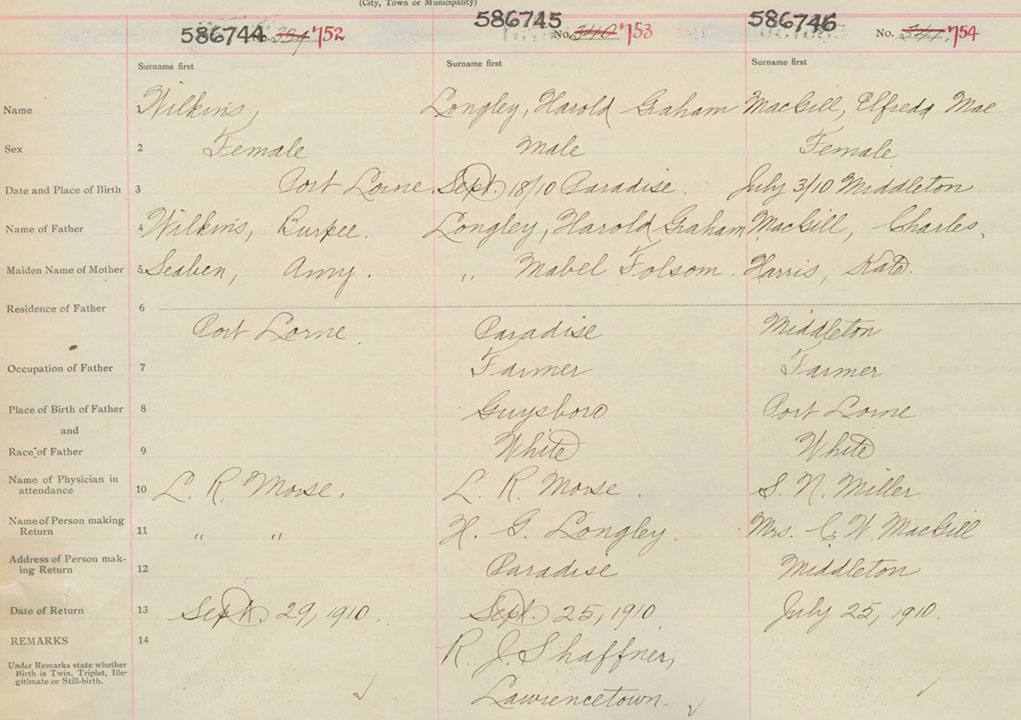 (City, Town or Municipality)
586744 No. 339 752 586745 No. 340 753 586746 No. 341 754
Surname first Surname first Surname first
Name 1 Wilkins, Longley, Harold Graham MacGill, Elfreda Mae
Sex 2 Female Male Female
Date and Place of Birth 3 Port Lorne Sept. 18/10 Paradise. July 3/10 Middleton
Name of Father 4 Wilkins, Burpee. Longley, Harold Graham MacGill, Charles,
Maiden Name of Mother 5 Seaben, Anny. " Mabel Folsom. Harris, Kate.
Residence of Father 6
Port Lorne. Paradise Middleton
Occupation of Father 7 Farmer Farmer
Place of Birth of Father 8 Guysboro Port Lorne
and
Race of Father 9 White White
Name of Physician in
attendance 10 L. R. Morse. L. R. Morse. S. N. Miller
Name of Person making
Return 11 " " H. G. Longley. Mrs. C W MacGill
Address of Person mak-
ing Return 12 Paradise Middleton
Date of Return 13 Sept. 29, 1910. Sept. 25, 1910. July 25, 1910.
REMARKS 14 R. J. Shaffner,
Under Remarks state whether
Birth is Twin, Triplet, Ille-
gitimate or Still-birth.
Lawrencetown.